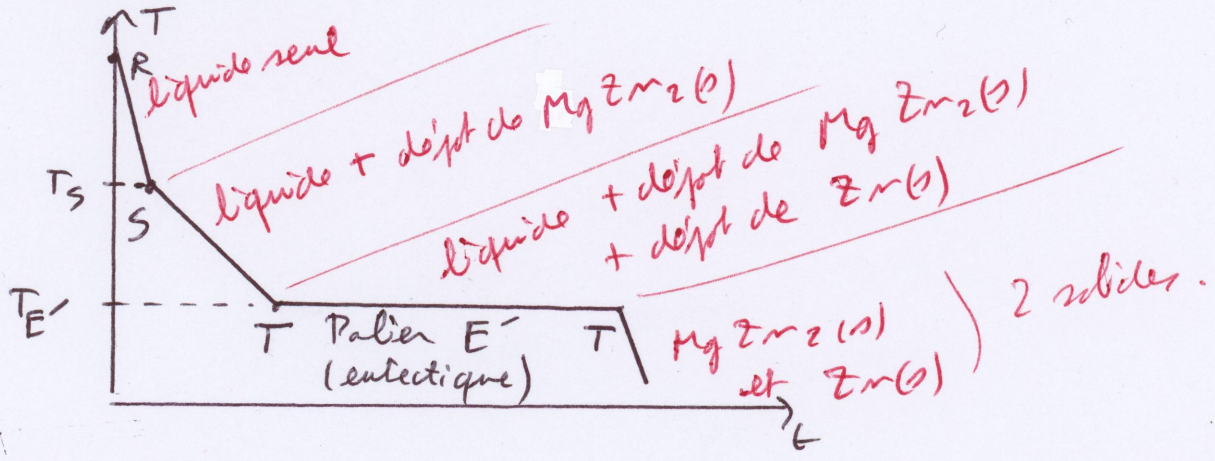 T
R
liquide seul
liquide + dépt de Mg Zn2(s)
liquide + dépt de Mg Zn2(s)
+ dépt de Zn(s)
TS
S
TE'
T Palier E' T
(eutectique)
Mg Zn2(s)
et Zn(s)
2 solides.
t